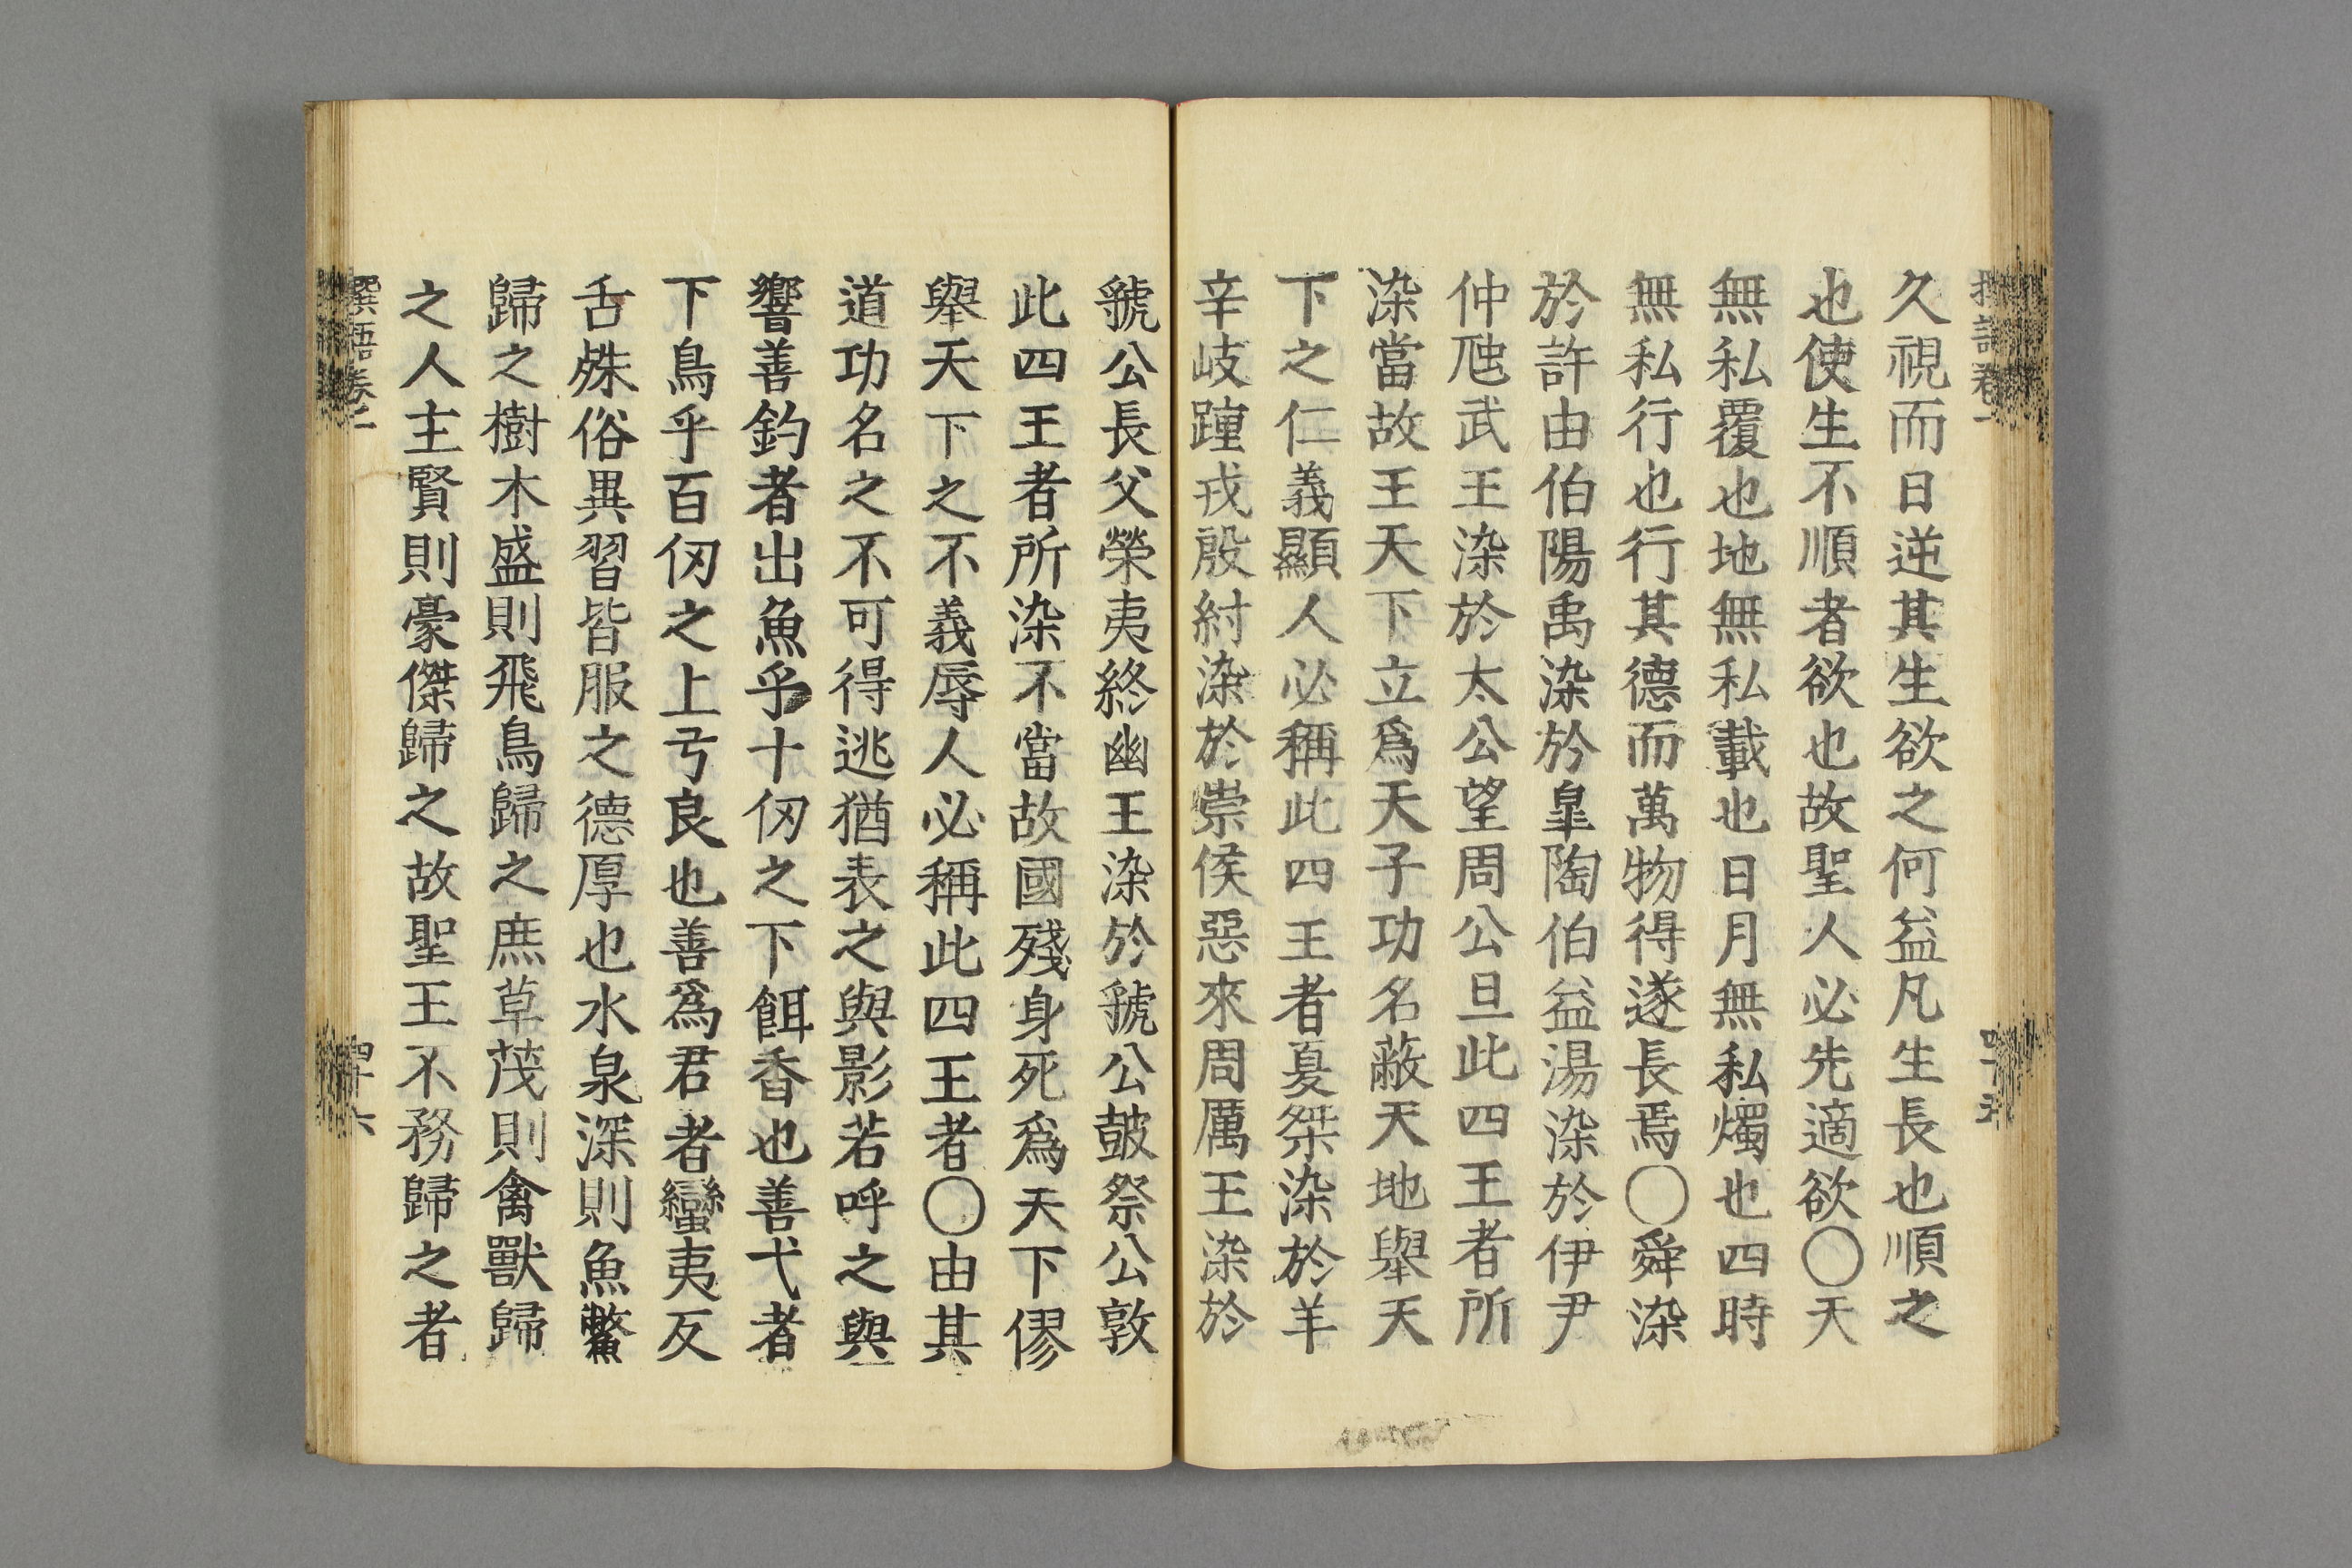 久視而日逆其生欲之何益凡生長也順之
也使生不順者欲也故聖人必先適欲〇天
無私覆也地無私載也日月無私燭也四時
無私行也行其德而萬物得遂長焉〇舜染
於許由伯陽禹染於皐陶伯益湯染於伊尹
仲虺武王染於太公望周公旦此四王者所
染當故王天下立爲天子功名蔽天地舉天
下之仁義顯人必稱此四王者夏桀染於羊
辛岐踵戎殷紂染於崇侯惡來周厲王染於
虢公長父榮夷終幽王染於虢公鼓祭公敦
此四王者所染不當故國殘身死爲天下僇
舉天下之不義辱人必稱此四王者〇由其
道功名之不可得逃猶表之與影若呼之與
響善釣者出魚乎十仞之下餌香也善弋者
下鳥乎百仞之上弓良也善爲君者蠻夷反
舌殊俗異習皆服之德厚也水泉深則魚鱉
歸之樹木盛則飛鳥歸之庶草茂則禽獸歸
之人主賢則豪傑歸之故聖王不務歸之者
語卷二